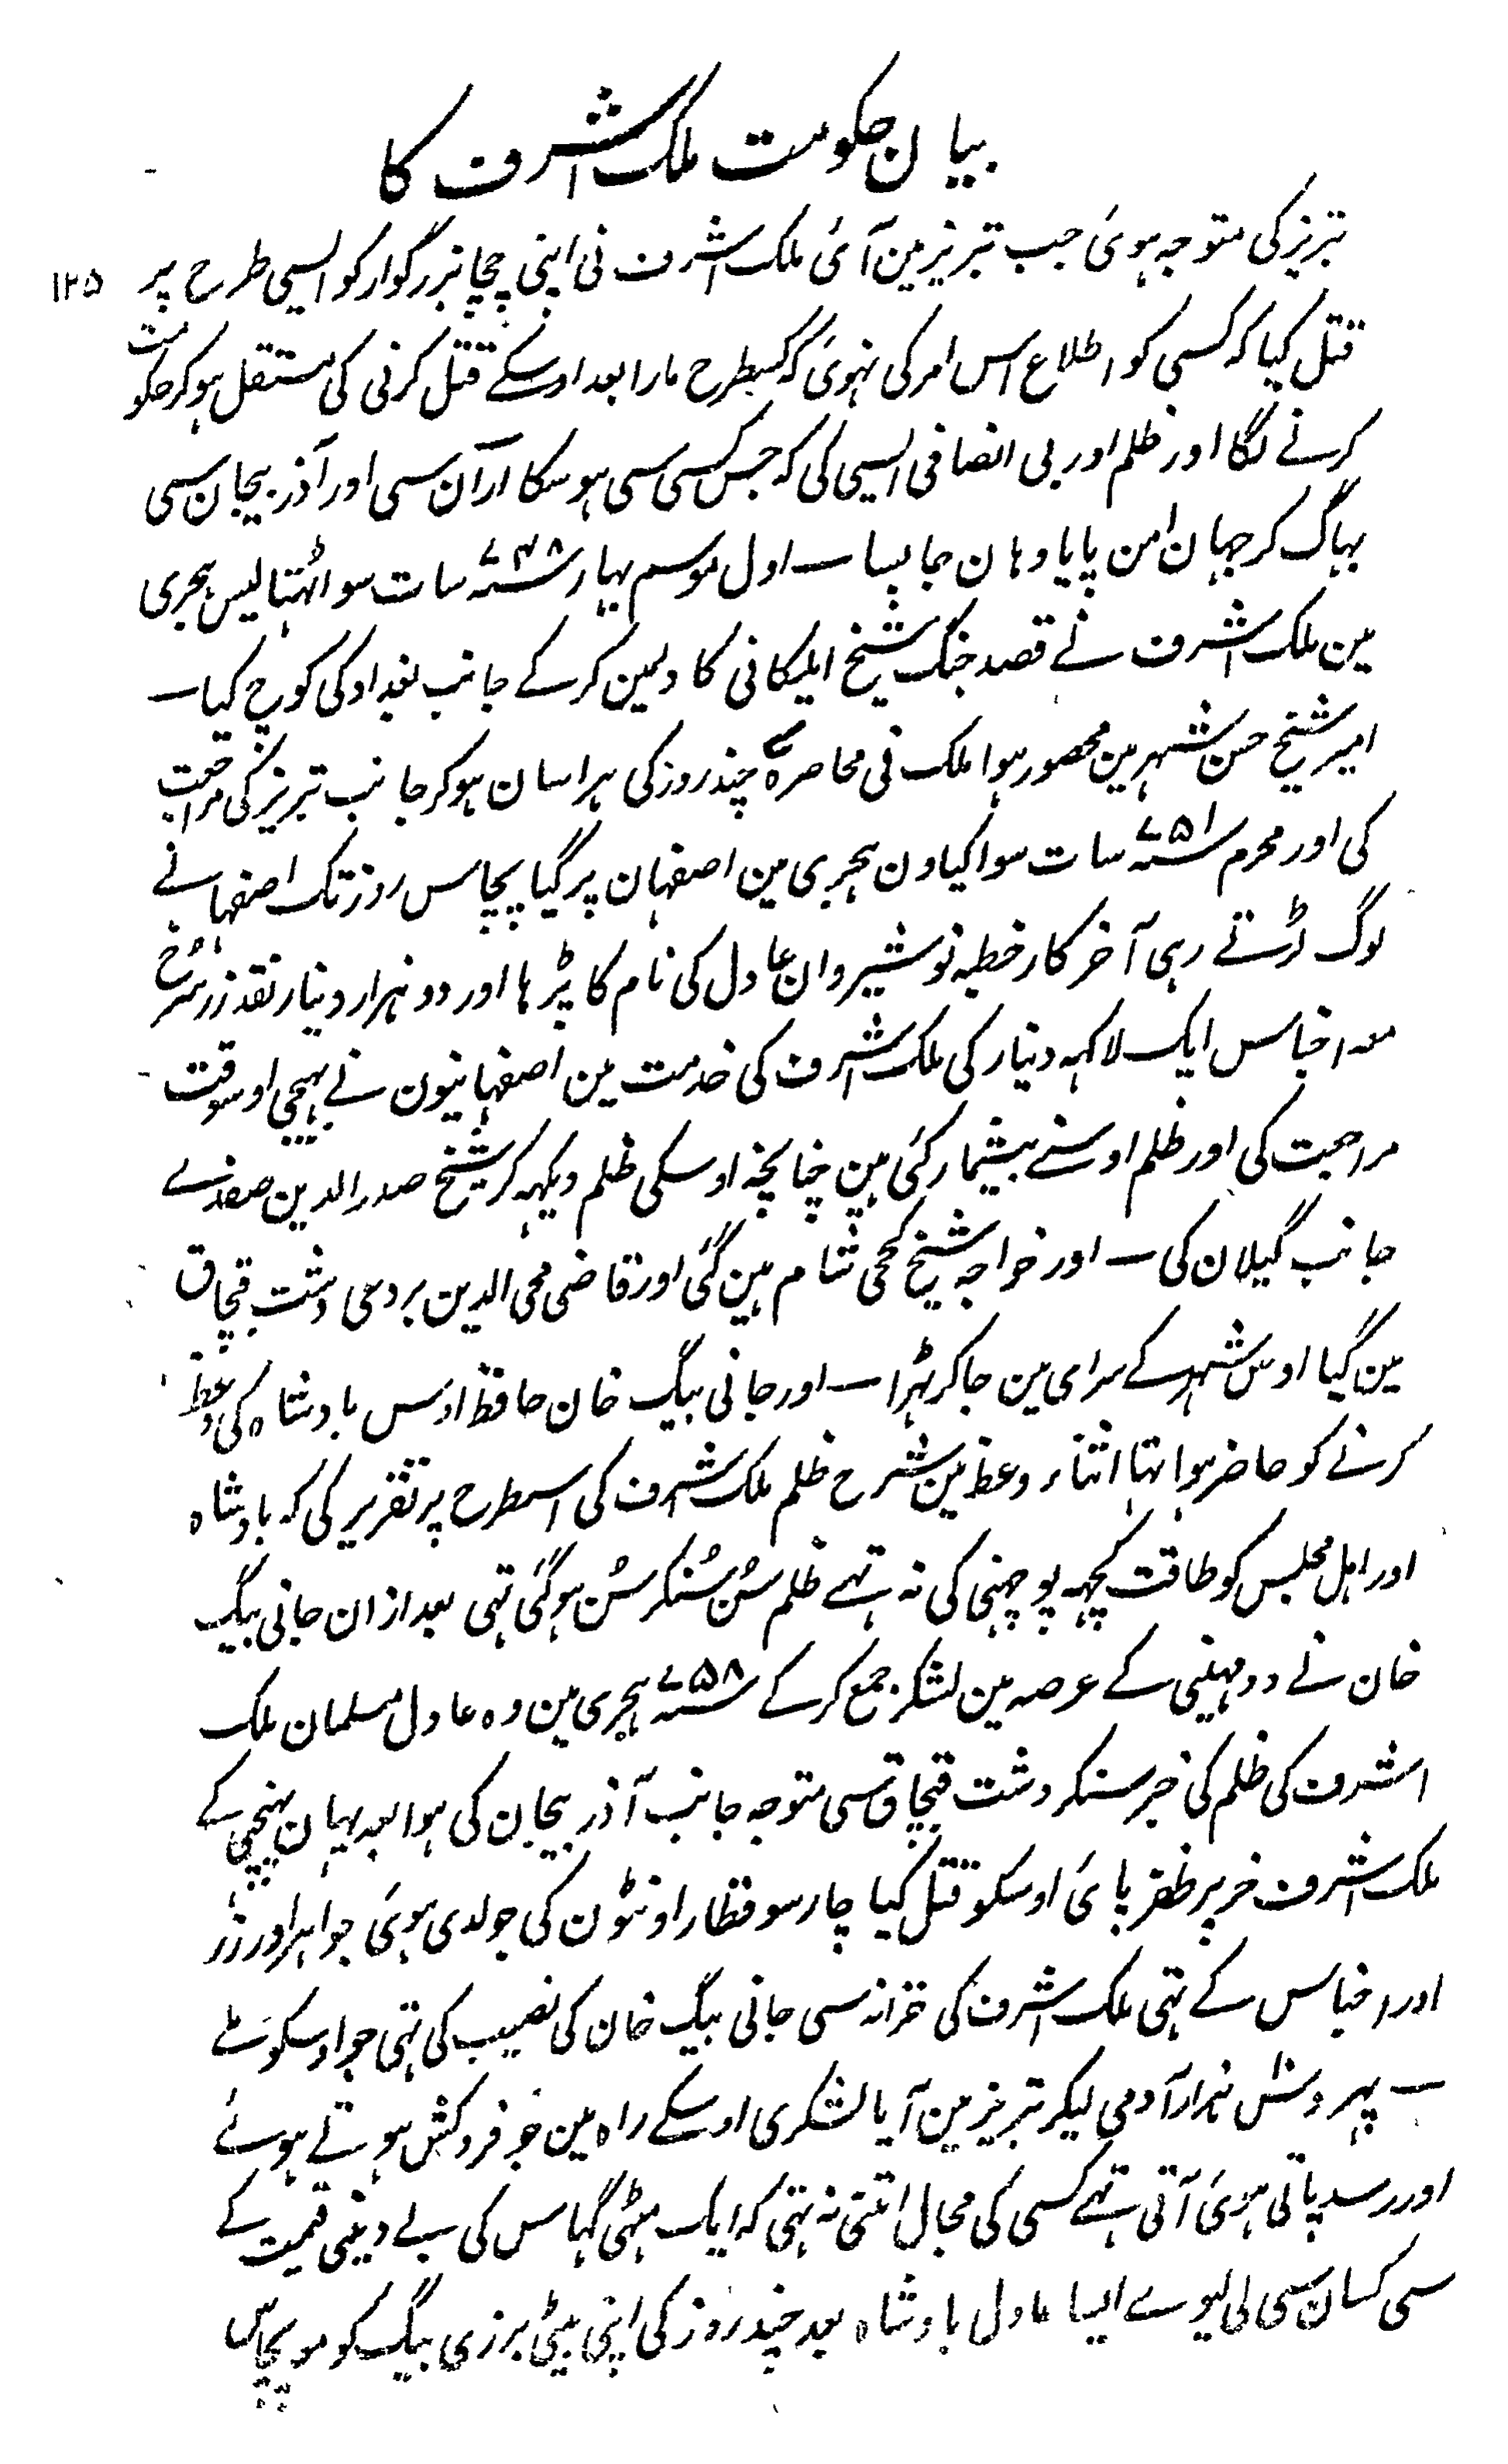 بیان حکومت ملک اشرف کا
۱۲۵
تبریز کی متوجہ ہوئ جب تبریز مین آئ ملک اشرف نی اپنی چچا بزرگوار کو ایسی طرح پر
قتل کیا کہ کسی کو اطلاع اس امر کی نہوئ کہ کسطرح مارا بعد اوسکے قتل کرنی کی مستقل ہو کر حکومت
کرنے لگا اور ظلم اور بی انصافی ایسی کی کہ جس کسی سی ہو سکا ارّان سی اور آذربیجان سی
بہاگ کر جہان امن پایا وہان جا بسا ــ اول موسم بہار ۷۴۸؁ سات سو اڑتالیس ہجری
مین ملک اشرف نے قصد جنگ شیخ ایلکانی کا دلمین کر کے جانب بغداد کی کوچ کیا ــ
امیر شیخ حسن شہر مین محصور ہوا ملک نی محاصرہ چند روز کی ہراسان ہو کر جانب تبریز کی مراجعت
کی اور محرم ۷۵۱؁ سات سو اکیاون ہجری مین اصفہان پر گیا پچاس روز تک اصفہانے
لوگ لڑتے رہی آخر کار خطبہ نوشیروان عادل کی نام کا پڑہا اور دو ہزار دینار نقد زر سُرخ
معہ اجناس ایک لاکہہ دینار کی ملک اشرف کی خدمت مین اصفہانیون نے بہیجی اوسوقت
مراجعت کی اور ظلم اوسنے بیشمار کئی ہین چنانچہ اوسکی ظلم دیکہہ کر شیخ صدر الدین صفوے
جانب گیلان کی ــ اور خواجہ شیخ کججی شام مین گئ اور قاضی محی الدین بردعی دشت قبچاق
مین گیا اوس شہر کے سرامی مین جا کر ٹہرا ــ اور جانی بیگ خان حافظ اوس بادشاہ کی وعظ
کرنے کو حاضر ہوا تہا اثناء وعظ مین شرح ظلم ملک اشرف کی اسطرح پر تقریر کی کہ بادشاہ
اور اہل مجلس کو طاقت کچہہ پوچہنی کی نہ تہے ظلم سُن سُنکر سُن ہو گئ تہی بعد ازان جانی بیگ
خان نے دو مہینی کے عرصہ مین لشکر جمع کر کے ۷۵۸؁ ہجری مین وہ عادل مسلمان ملک
اشرف کی ظلم کی خبر سنکر دشت قبچاق سی متوجہ جانب آذربیجان کی ہوا بعد یہان پہنچی کے
ملک اشرف خر پر ظفر پائ اوسکو قتل کیا چار سو قطار اونٹون کی جو لدی ہوئ جواہر اور زر
اور اجناس کے تہی ملک اشرف کی خزانہ سی جانی بیگ خان کی نصیب کی تہی جو اوسکو ملے
ــ پہر دس ہزار آدمی لیکر تبریز مین آیا لشکری اوسکے راہ مین جو فروکش ہوتے ہوئے
اور رسد پاتی ہوئ آتی تہے کسی کی مجال اتنی نہ تہی کہ ایک مٹہی گہاس کی بے دینی قیمت کے
کسی کسان سی لی لیوے ایسا عادل بادشاہ بعد چند روز کی اپنی بیٹی بردی بیگ کو مع پچاس